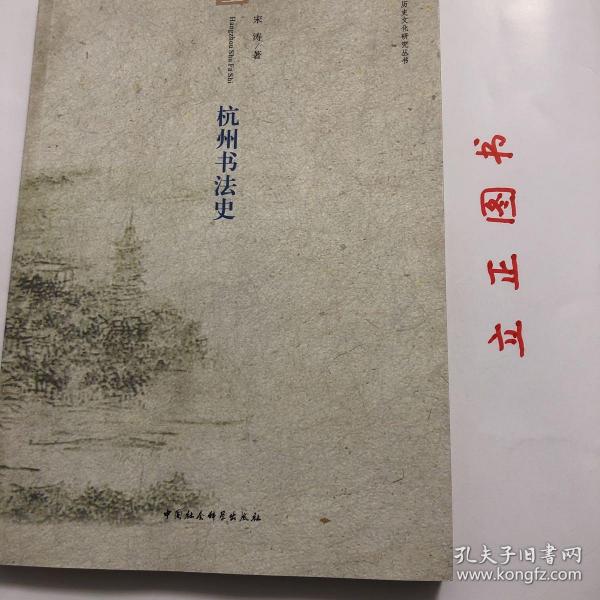 历史文化研究丛书
宋涛/著
Hangzhou Shu Fa Shi
杭州书法史
中国社会科学出版社
立正图书
孔夫子旧书网
www.kongfz.com